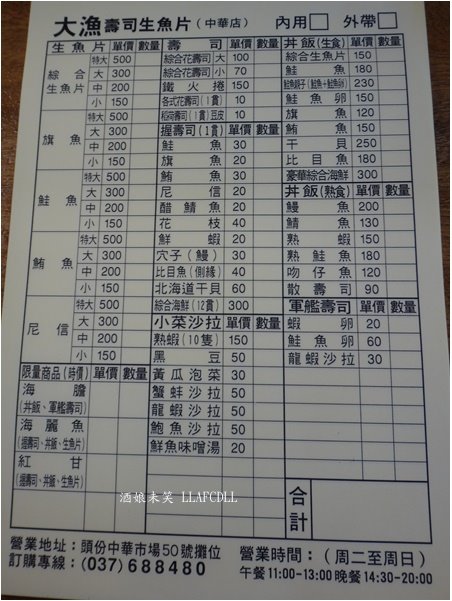 大漁壽司生魚片(中華店) 內用 外帶
生魚片 單價 數量
綜合生魚片
特大 500
大 300
中 200
小 150
旗魚
特大 500
大 300
中 200
小 150
鮭魚
特大 500
大 300
中 200
小 150
鮪魚
特大 500
大 300
中 200
小 150
尼信
特大 500
大 300
中 200
小 150
限量商品(時價) 數量
海膽
(丼飯、軍艦壽司)
海麗魚
(握壽司、丼飯、生魚片)
紅甘
(握壽司、丼飯、生魚片)
壽司 單價 數量
綜合花壽司 大 100
綜合花壽司 小 70
鐵火捲 150
各式花壽司(1貫) 10
稻荷壽司(1貫)豆皮 10
握壽司(1貫) 單價 數量
鮭魚 30
旗魚 20
鮪魚 30
尼信 20
醋鯖魚 20
花枝 40
鮮蝦 20
穴子(鰻) 30
比目魚(側緣) 40
北海道干貝 60
綜合海鮮(12貫) 300
小菜沙拉 單價 數量
熟蝦(10隻) 150
黑豆 50
黃瓜泡菜 30
蟹蚌沙拉 50
龍蝦沙拉 50
鮑魚沙拉 50
鮮魚味噌湯 20
丼飯(生食) 單價 數量
綜合生魚片 150
鮭魚 180
鮭魚親子(鮭魚+鮭魚卵) 230
鮭魚卵 150
旗魚 120
鮪魚 150
干貝 250
比目魚 180
豪華綜合海鮮 300
丼飯(熟食) 單價 數量
鰻魚 200
鯖魚 130
熟蝦 150
熟鮭魚 180
吻仔魚 120
散壽司 90
軍艦壽司 單價 數量
蝦卵 20
鮭魚卵 60
龍蝦沙拉 30
合計
酒娘未笑 LLAFCDLL
營業地址:頭份中華市場50號攤位
訂購專線:(037)688480
營業時間:(周二至周日)
午餐11:00-13:00 晚餐14:30-20:00